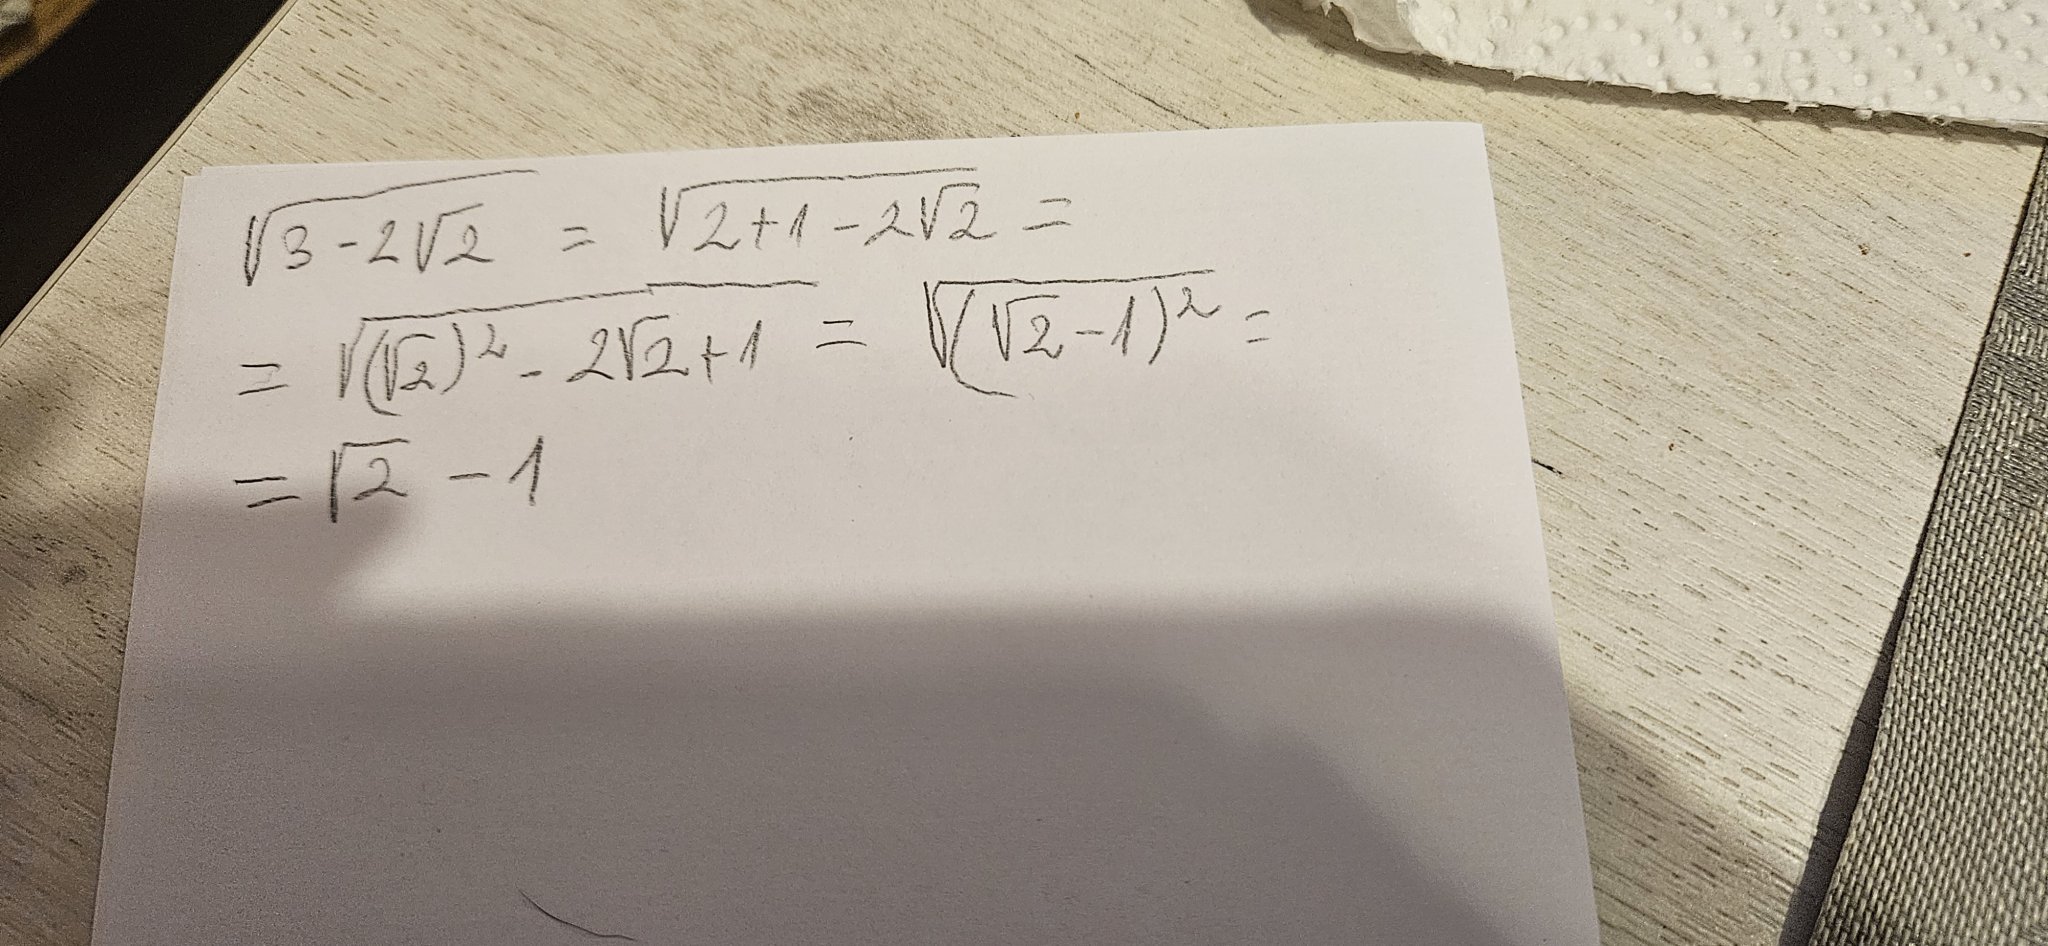 √(3 - 2√2) = √(2+1 - 2√2) =
= √((√2)² - 2√2+1) = √((√2-1)²) =
= √2 - 1